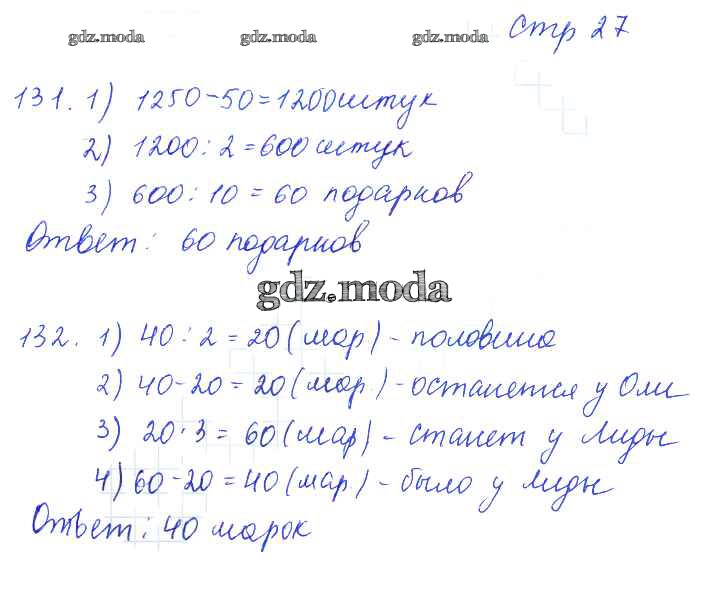 gdz.moda gdz.moda gdz.moda Стр 27
131. 1) 1250-50=1200штук
2) 1200:2=600штук
3) 600:10=60 подарков
Ответ: 60 подарков
gdz.moda
132. 1) 40:2=20(мар)-половина
2) 40-20=20(мар)-останется у Оли
3) 20·3=60(мар)-станет у Лиды
4) 60-20=40(мар)-было у Лиды
Ответ: 40 марок